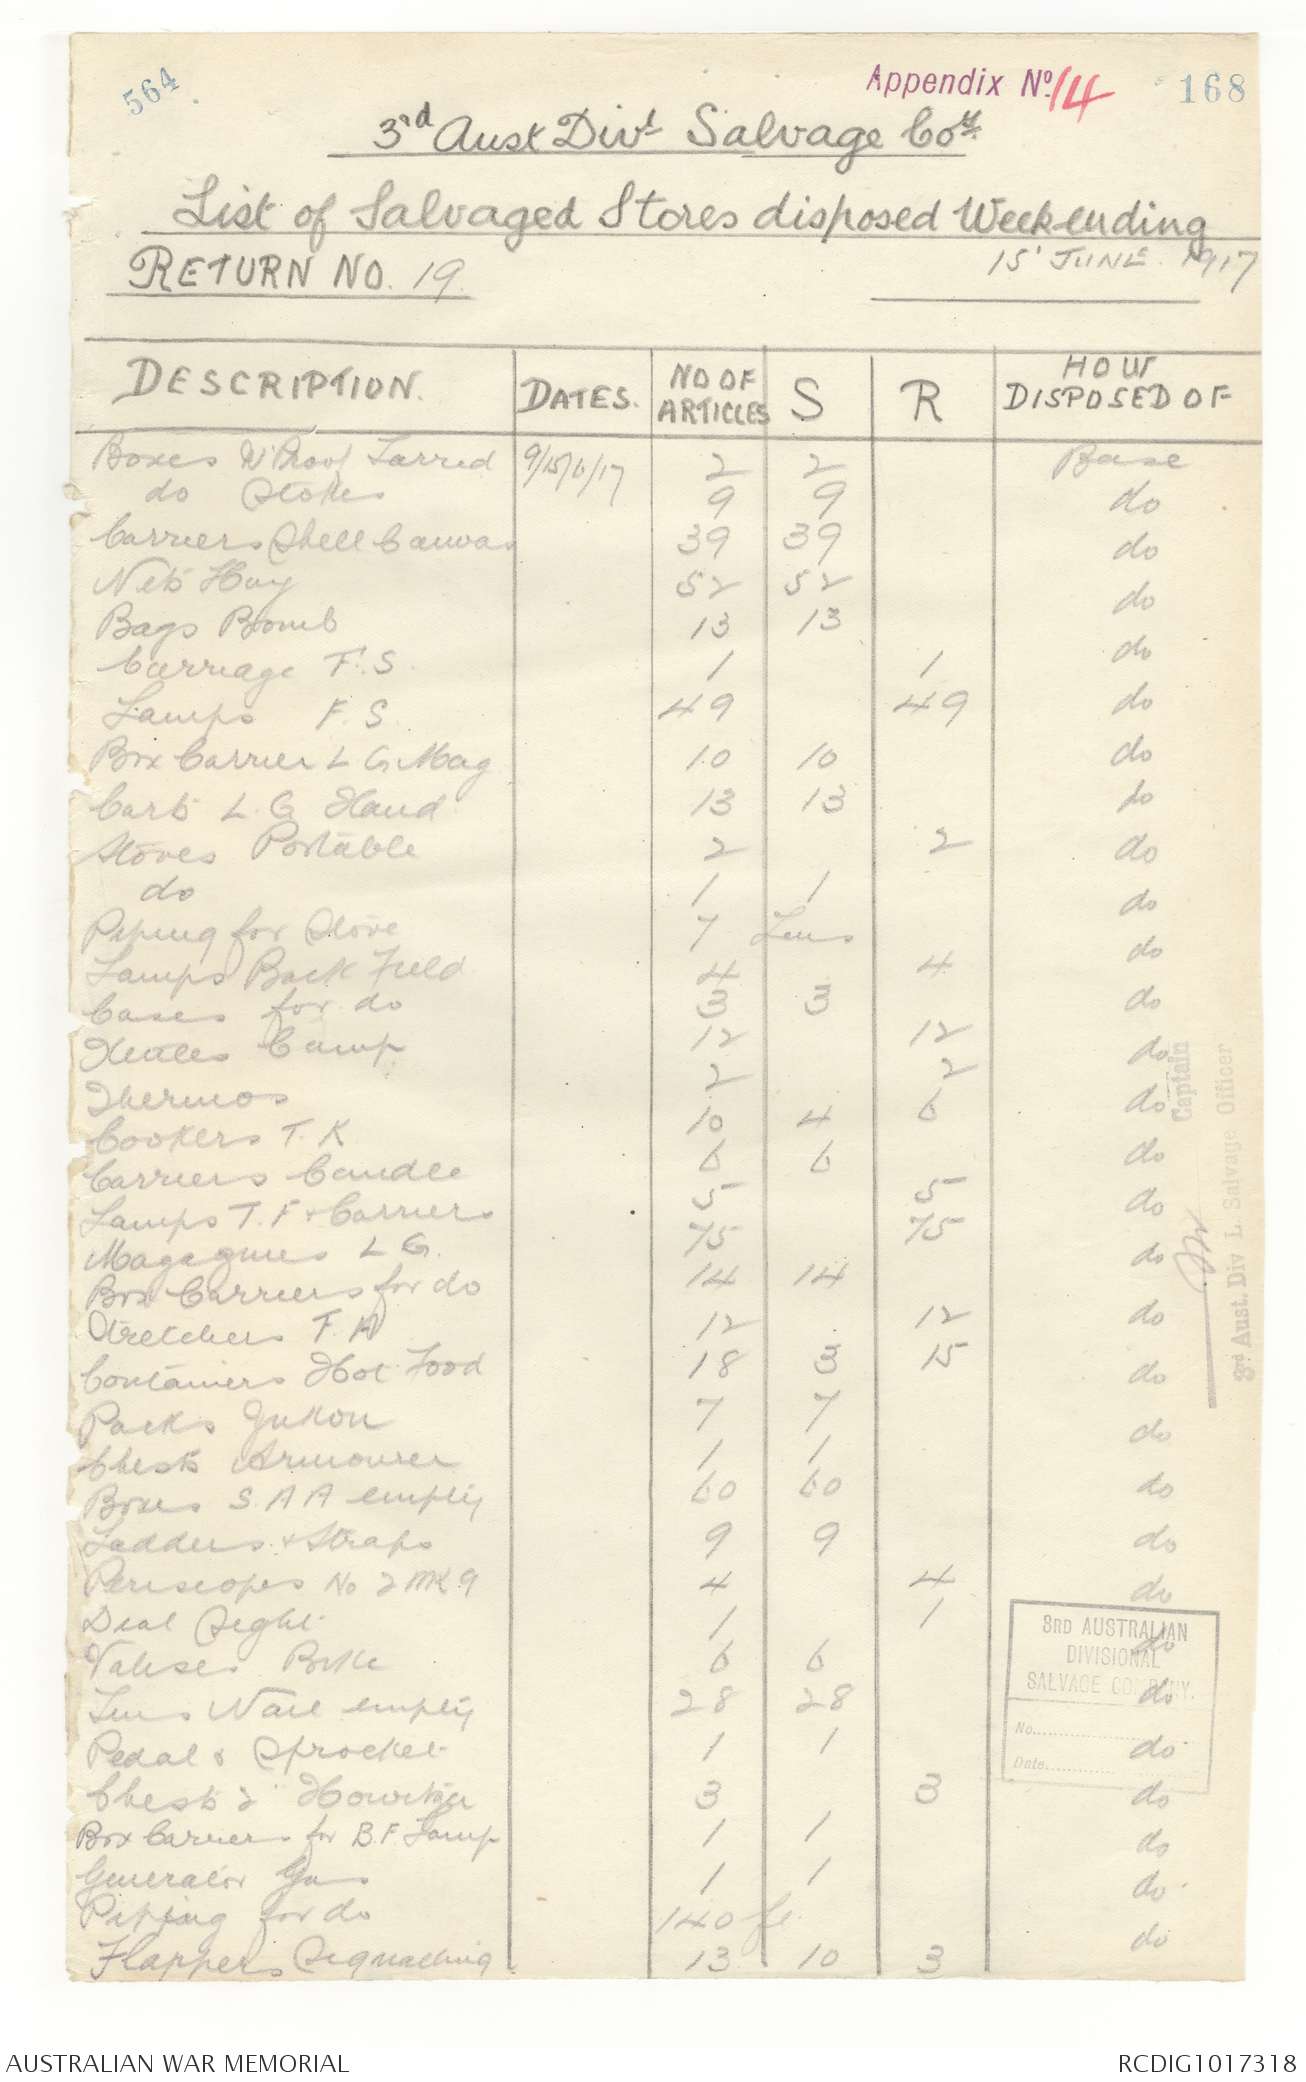 564
Appendix No. 14
168
3rd Aust Divl Salvage Coy.
List of Salvaged Stores disposed Week ending
RETURN NO. 19.
15 JUNE 1917
DESCRIPTION. DATES. NO OF ARTICLES S R HOW DISPOSED OF
Boxes W'Proof Tarred 9/15/6/17 2 2 Base
do Stokes 9 9 do
Carriers Shell Canvas 39 39 do
Nets Hay 52 52 do
Bags Bomb 13 13 do
Carriage F.S. 1 1 do
Lamps F.S. 49 49 do
Box Carrier L G Mag 10 10 do
Carts L.G Hand 13 13 do
Stoves Portable 2 2 do
do 1 1 do
Piping for Stove 7 do
Lamps Back Field 4 4 do
Cases for do 3 3 do
Kettles Camp 12 12 do
Thermos 2 2 do
Cookers T.K 10 4 6 do
Carriers Candle 6 6 do
Lamps T.F & Carriers 5 5 do
Magazines L G. 75 75 do
Box Carriers for do 14 14 do
Stretchers F.A 12 12 do
Containers Hot Food 18 3 15 do
Packs Yukon 7 7 do
Chests Armourer 1 1 do
Boxes S.A A empty 60 60 do
Ladders & Straps 9 9 do
Periscopes No 2 MK 9 4 4 do
Dial Sight 1 1 do
Valises 6 6 do
empty 28 28 do
Pedal & Sprocket 1 1 do
Chests 2" Howitzer 3 3 do
Box Carriers for B.F. Lamp 1 1 do
Generator Gas 1 1 do
Piping for do 140 ft
Flappers Signalling 13 10 3 do
Captain
3rd Aust. Div L. Salvage Officer
3RD AUSTRALIAN
DIVISIONAL
SALVAGE COMPANY.
No.
Date
AUSTRALIAN WAR MEMORIAL
RCDIG1017318